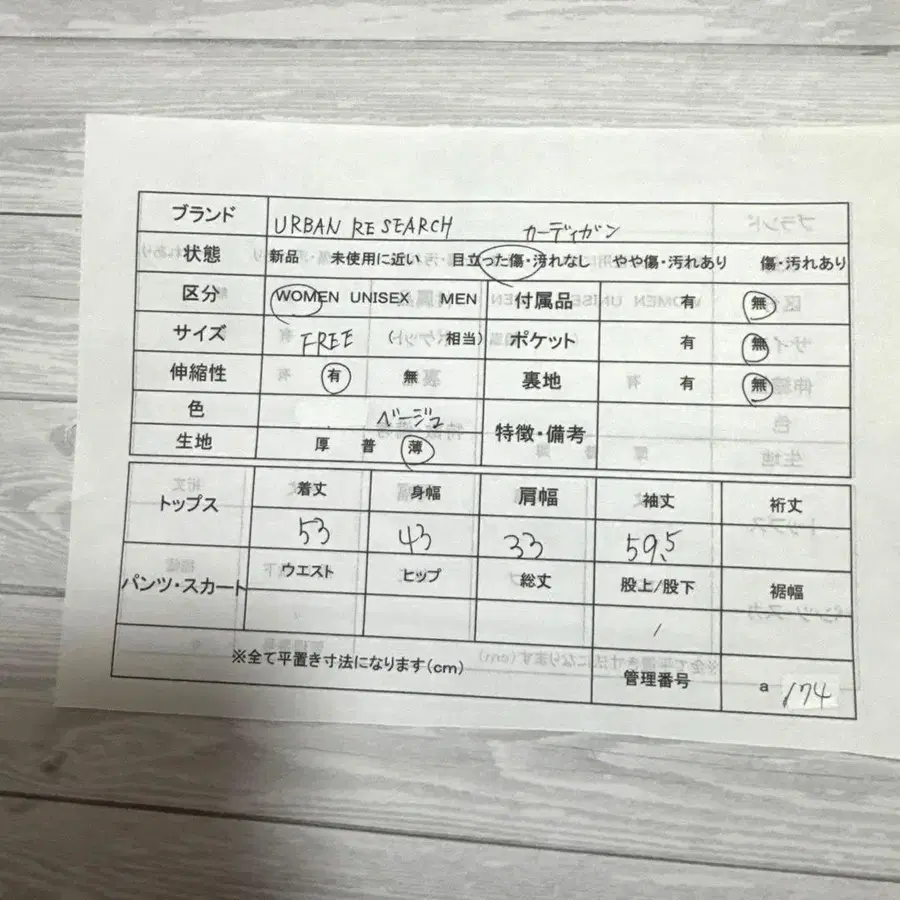 ブランド URBAN RESEARCH カーディガン
状態 新品 未使用に近い 目立った傷・汚れなし やや傷・汚れあり 傷・汚れあり
区分 WOMEN UNISEX MEN 付属品 有 無
サイズ FREE ( 相当) ポケット 有 無
伸縮性 有 無 裏地 有 無
色 ベージュ 特徴・備考
生地 厚 普 薄
トップス 着丈 身幅 肩幅 袖丈 裄丈
53 43 33 59.5
パンツ・スカート ウエスト ヒップ 総丈 股上/股下 裾幅
/
※全て平置き寸法になります(cm) 管理番号 a 174